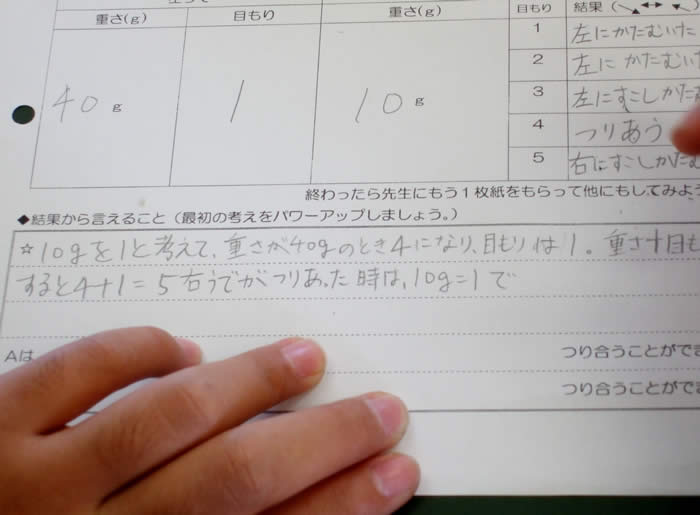 重さ(g) 目もり 重さ(g) 目もり 結果(
40 g 1 10 g
1 左にかたむいた
2 左にかたむいた
3 左にすこしかたむ
4 つりあう
5 右にすこしかたむ
終わったら先生にもう1枚紙をもらって他にもしてみよ
◆結果から言えること（最初の考えをパワーアップしましょう。）
☆10gを1と考えて、重さが40gのとき4になり、目もりは1。重さ+目も
すると4+1=5右うでがつりあった時は、10g=1で
Aは つり合うことがで
つり合うことができ